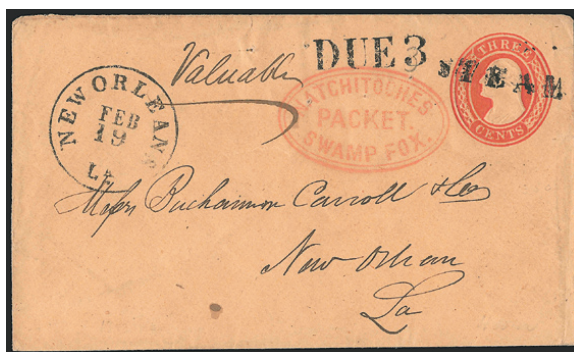 Valuable
DUE 3
STEAM
THREE
CENTS
NATCHITOCHES
PACKET.
SWAMP FOX.
NEW ORLEANS
FEB
19
LA
Messrs Buchannon Carroll & Co
New Orlean
La